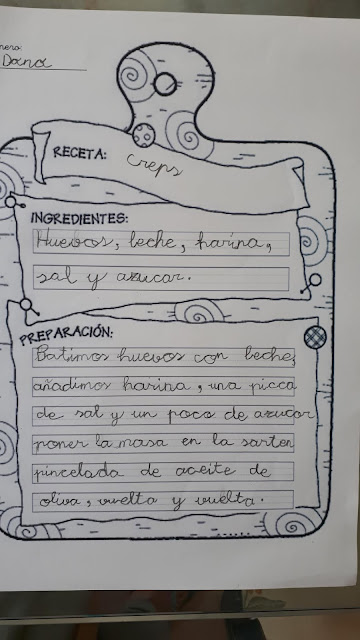 nero:
Dana
RECETA: creps
INGREDIENTES:
Huevos, leche, harina,
sal y azucar.
PREPARACIÓN:
Batimos huevos con leche,
añadimos harina, una picca
de sal y un poco de azucar
poner la masa en la sarten
pincelada de aceite de
oliva, vuelta y vuelta.